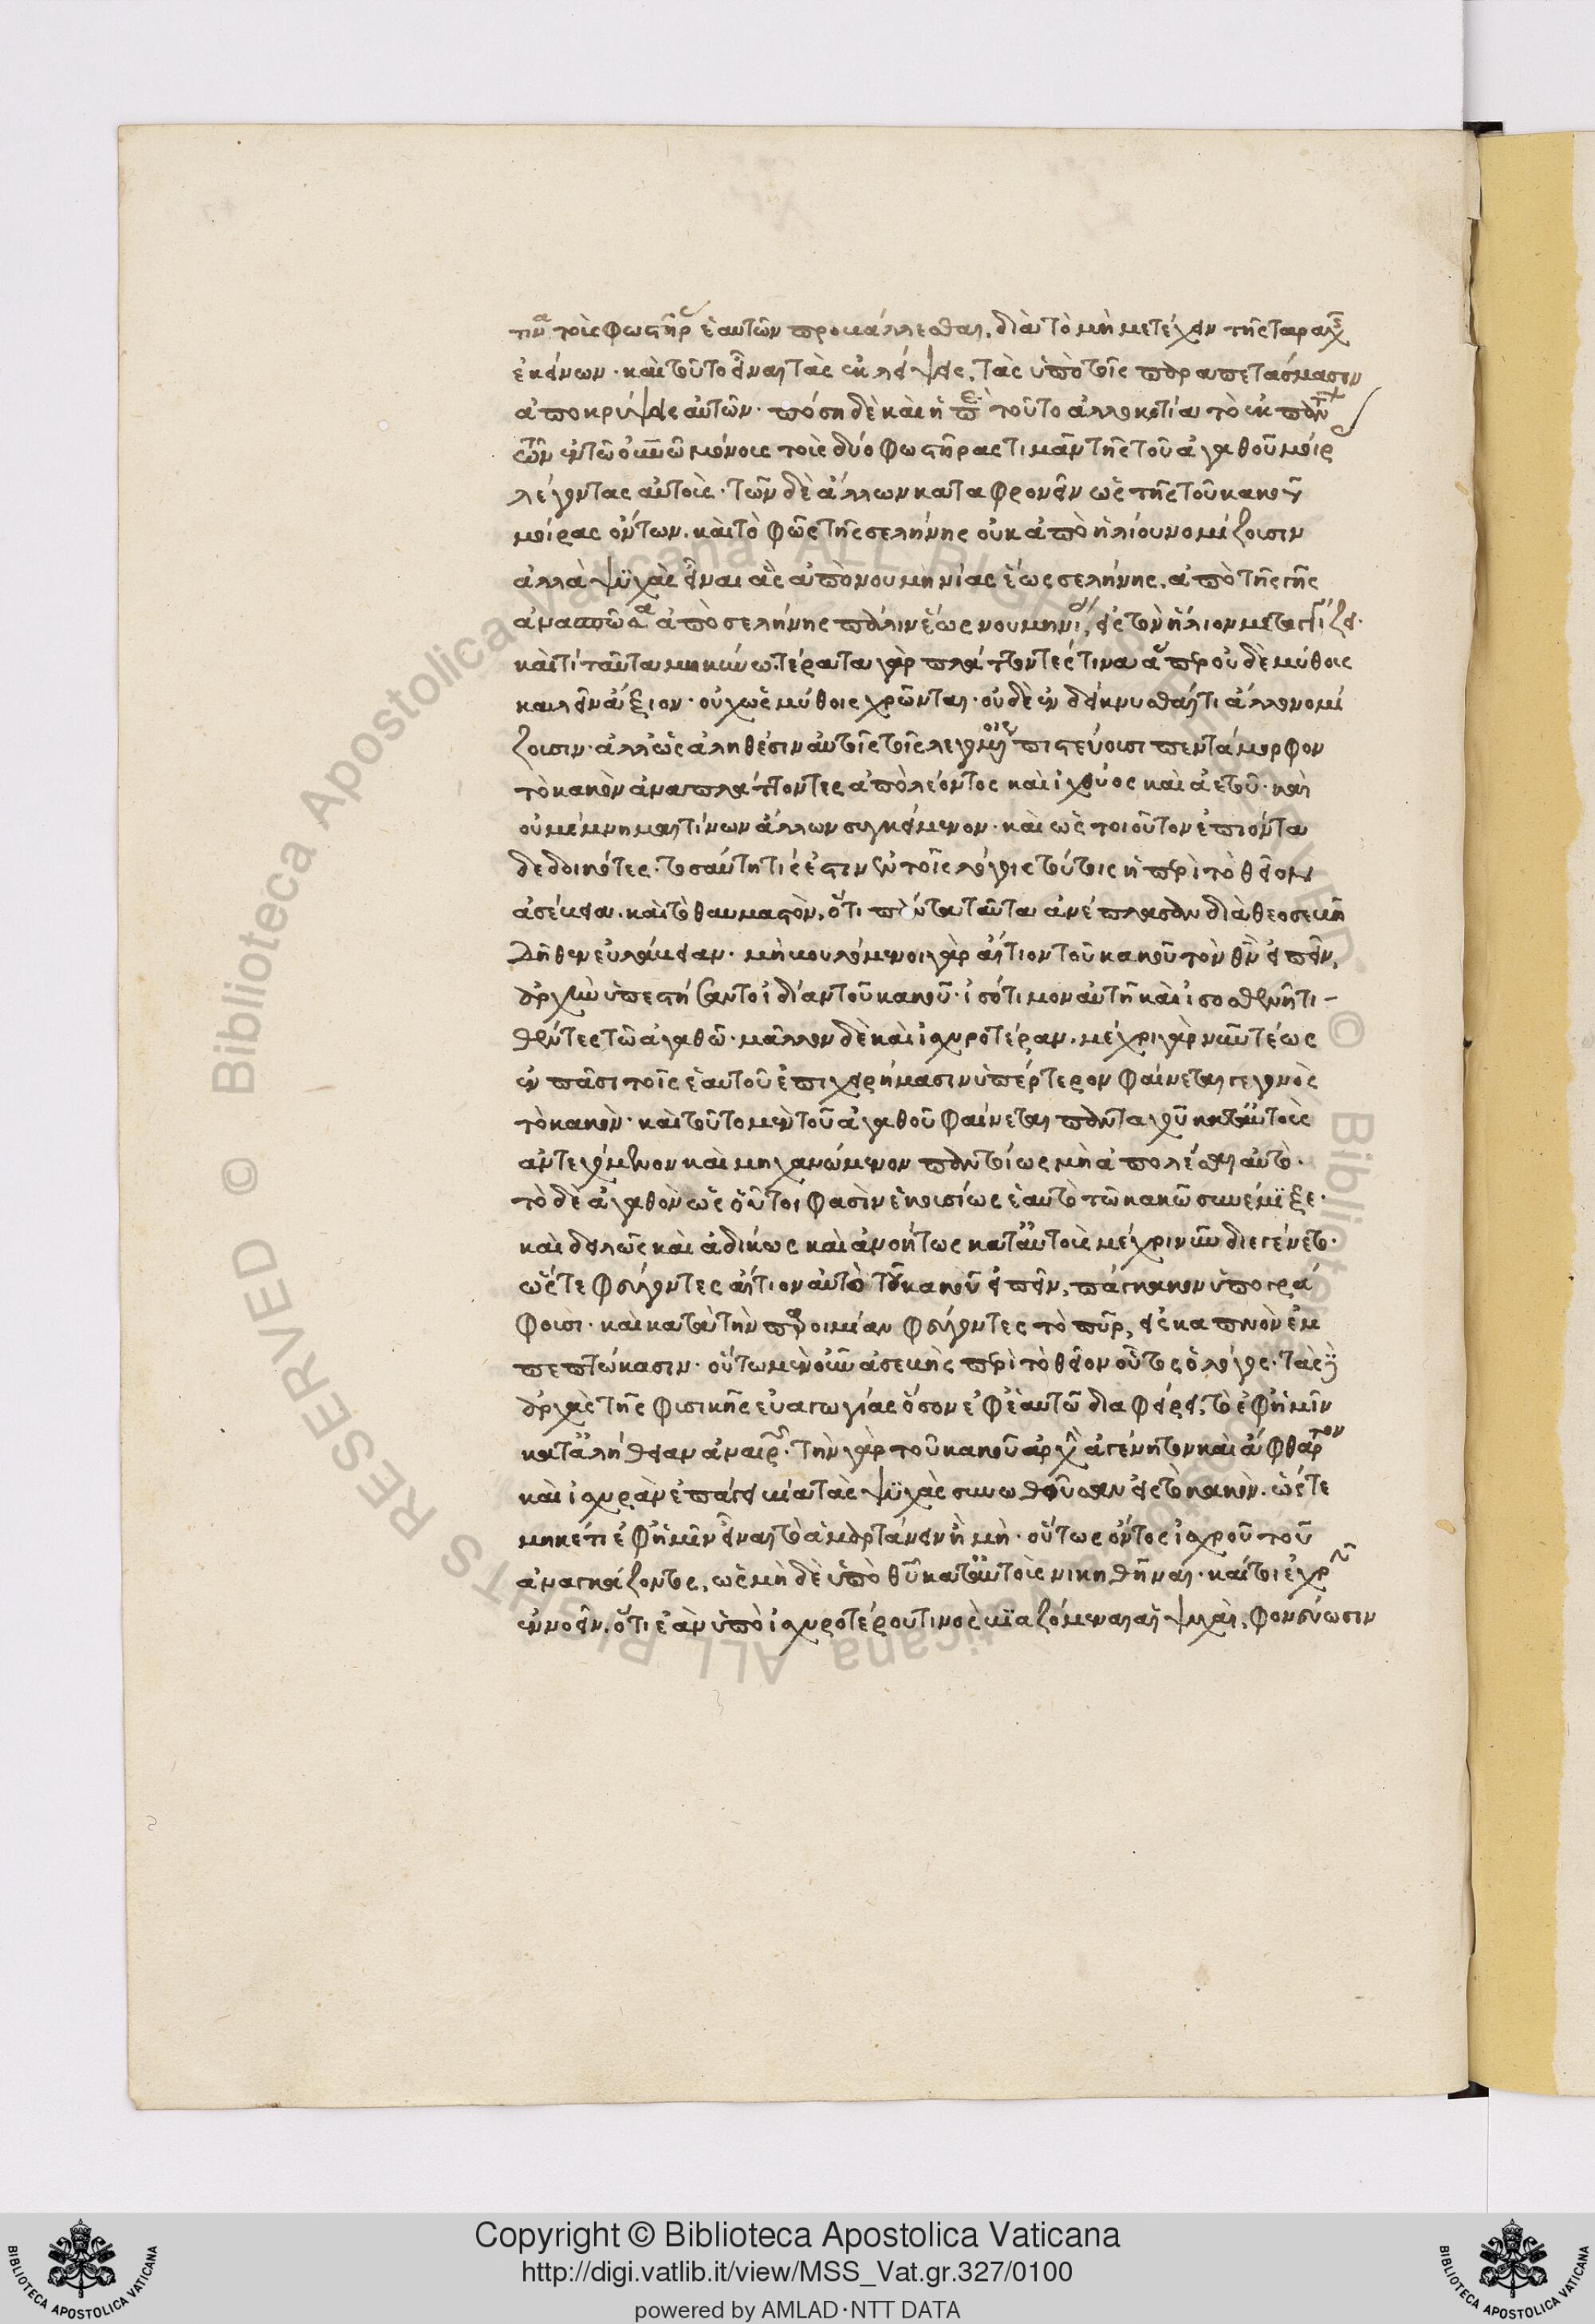 τινα τοῖς φωστῆρας ἑαυτῶν προβάλλεσθαι, διὰ τὸ μὴ μετέχειν τῆς ταραχῆς
ἐκείνων· καὶ τοῦτο εἶναι τὰς ἐκλείψεις, τὰς ὑπὸ τοῖς παραπετάσμασιν
ἀποκρύψεις αὐτῶν· πόση δὲ καὶ ἡ περὶ τοῦτο ἀλλοκοτία τὸ ἐκ πάντων
τῶν ἐν τῷ οὐρανῷ μόνους τοὺς δύο φωστῆρας τιμᾶν τῆς τοῦ ἀγαθοῦ μοίρας
λέγοντας αὐτούς· τῶν δὲ ἄλλων καταφρονεῖν ὡς τῆς τοῦ κακοῦ
μοίρας ὄντων. καὶ τὸ φῶς τῆς σελήνης οὐκ ἀπὸ ἡλίου νομίζουσιν
ἀλλὰ ψυχὰς εἶναι ἃς ἀπὸ νουμηνίας ἕως σελήνης, ἀπὸ τῆς γῆς
ἀνασπῶσα ἀπὸ σελήνης πάλιν ἕως νουμηνίας, εἰς τὸν ἥλιον μεταγγίζει·
καὶ τί ταῦτα μηκύνω. τέρατα γὰρ πλάττοντές τινα ἅπερ οὐδὲ μύθους
καλεῖν ἄξιον· οὐχ ὡς μύθοις χρῶνται· οὐδὲ ἐνδείκνυσθαί τι ἄλλο νομί
ζουσιν· ἀλλ' ὡς ἀληθέσιν αὐτοῖς τοῖς λεγομένοις πιστεύουσι πεντάμορφον
τὸ κακὸν ἀναπλάττοντες ἀπὸ λέοντος καὶ ἰχθύος καὶ ἀετοῦ· καὶ
οὐ μέμνημαι τίνων ἄλλων συγκείμενον· καὶ ὡς τοιοῦτον ἐπιόντα
δεδοικότες· τοσαύτη τίς ἐστιν ἐν τοῖς λόγοις τούτοις ἡ περὶ τὸ θεῖον
ἀσέβεια. καὶ τὸ θαυμαστὸν, ὅτι πάντα ταῦτα ἀνέπλασαν διὰ θεοσεβῆ
δῆθεν εὐλάβειαν· μὴ βουλόμενοι γὰρ αἴτιον τοῦ κακοῦ τὸν θν εἰπεῖν,
ἀρχὴν ὑπεστήσαντο ἰδίαν τοῦ κακοῦ· ἰσότιμον αὐτὴν καὶ ἰσοσθενῆ τι-
θέντες τῷ ἀγαθῷ· μᾶλλον δὲ καὶ ἰσχυροτέραν. μέχρι γὰρ νῦν τέως
ἐν πᾶσι τοῖς ἑαυτοῦ ἐπιχειρήμασιν ὑπέρτερον φαίνεται γεγονὸς
τὸ κακὸν· καὶ τοῦτο μὲν τοῦ ἀγαθοῦ φαίνεται πανταχοῦ κατ' αὐτοὺς
ἀντεχόμενον καὶ μηχανώμενον παντοίως μὴ ἀπολέσθαι αὐτό·
τὸ δὲ ἀγαθὸν ὡς οὗτοι φασὶν ἑκουσίως ἑαυτὸ τῷ κακῷ συνέμιξε·
καὶ δειλῶς καὶ ἀδίκως καὶ ἀνοήτως κατ' αὐτοὺς μέχρι νῦν διεγένετο·
ὥστε φεύγοντες αἴτιον αὐτὸ τοῦ κακοῦ εἰπεῖν, πάγκακον ὑπογρά
φουσι· καὶ κατὰ τὴν παροιμίαν φεύγοντες τὸ πῦρ, εἰς καπνὸν ἐμ
πεπτώκασιν· οὕτω μὲν οὖν ἀσεβὴς περὶ τὸ θεῖον οὗτος ὁ λόγος· τὰς
ἀρχὰς τῆς φυσικῆς εὐαγωγίας ὅσον ἐφ' ἑαυτῷ διαφθείρει, τὸ ἐφ' ἡμῖν
κατ' ἀλήθειαν ἀναιρῶν· τὴν γὰρ τοῦ κακοῦ ἀρχὴν ἀγένητον καὶ ἄφθαρτον
καὶ ἰσχυρὰν ἐπάγει βίᾳ τὰς ψυχὰς συνωθοῦσαν εἰς τὸ κακόν. ὥστε
μηκέτι ἐφ' ἡμῖν εἶναι τὸ ἁμαρτάνειν ἢ μὴ· οὕτως ὄντος ἰσχυροῦ τοῦ
ἀναγκάζοντος, ὡς μὴ δὲ ὑπὸ θυ κατ' αὐτοὺς νικηθῆναι· καίτοι ἐχρῆν
ἐννοεῖν, ὅτι ἐὰν ὑπὸ ἰσχυροτέρου τινὸς βιαζόμεναι αἱ ψυχαὶ, φονεύωσιν
Copyright © Biblioteca Apostolica Vaticana
http://digi.vatlib.it/view/MSS_Vat.gr.327/0100
powered by AMLAD·NTT DATA